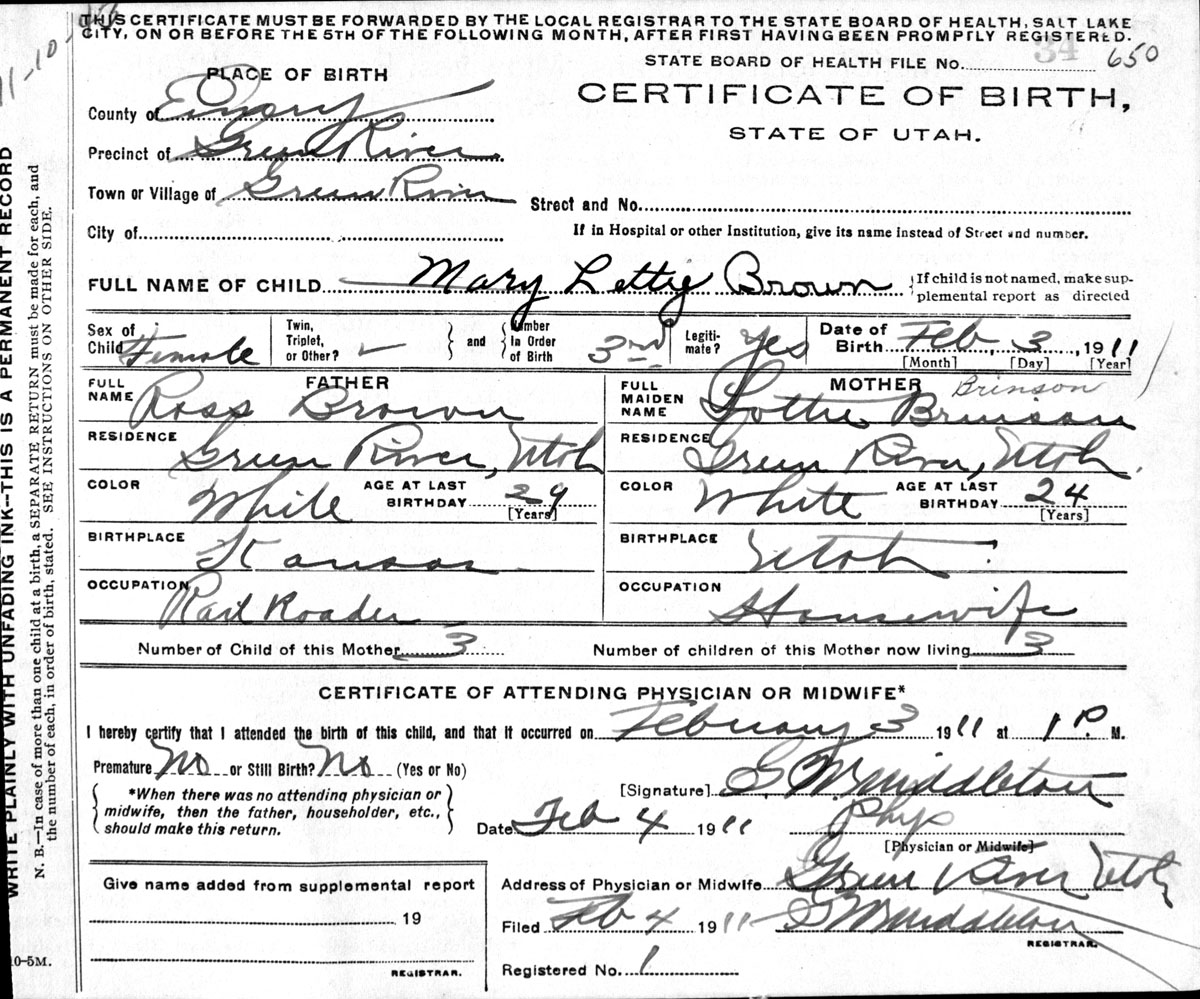 THIS CERTIFICATE MUST BE FORWARDED BY THE LOCAL REGISTRAR TO THE STATE BOARD OF HEALTH, SALT LAKE
CITY, ON OR BEFORE THE 5TH OF THE FOLLOWING MONTH, AFTER FIRST HAVING BEEN PROMPTLY REGISTERED.
STATE BOARD OF HEALTH FILE No. 34 650
PLACE OF BIRTH
CERTIFICATE OF BIRTH,
STATE OF UTAH.
County of Emery
Precinct of Green River
Town or Village of Green River
Street and No.
City of
If in Hospital or other Institution, give its name instead of Street and number.
FULL NAME OF CHILD Mary Lettie Brown
{If child is not named, make sup-
plemental report as directed
Sex of Child Female
Twin, Triplet, or Other? ✓ } and { Number in Order of Birth 3rd
Legiti-mate? Yes
Date of Birth Feb, 3, 1911
[Month] [Day] [Year]
FATHER
FULL NAME Ross Brown
MOTHER Brinson
FULL MAIDEN NAME Lottie Brinson
RESIDENCE Green River, Utah
RESIDENCE Green River, Utah.
COLOR White AGE AT LAST BIRTHDAY 29 [Years]
COLOR White AGE AT LAST BIRTHDAY 24 [Years]
BIRTHPLACE Kansas
BIRTHPLACE Utah
OCCUPATION Rail Roader
OCCUPATION Housewife
Number of Child of this Mother 3
Number of children of this Mother now living 3
CERTIFICATE OF ATTENDING PHYSICIAN OR MIDWIFE*
I hereby certify that I attended the birth of this child, and that it occurred on February 3 1911 at 1 P. M.
Premature No or Still Birth? No (Yes or No)
{ *When there was no attending physician or
midwife, then the father, householder, etc.,
should make this return. }
[Signature] G W Middleton
Date Feb 4 1911 Phys
[Physician or Midwife]
Give name added from supplemental report
19
REGISTRAR.
Address of Physician or Midwife Green River Utah
Filed Feb 4 1911 G W Middleton
REGISTRAR.
Registered No. 1
WRITE PLAINLY WITH UNFADING INK--THIS IS A PERMANENT RECORD
N. B.—In case of more than one child at a birth, a SEPARATE RETURN must be made for each, and
the number of each, in order of birth, stated. SEE INSTRUCTIONS ON OTHER SIDE.
10-5M.